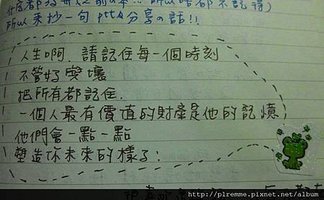 所以來抄一句 ptt 分享的話!!
人生啊 請記住每一個時刻
不管好與壞
把所有都記住.
一個人最有價值的財產是他的記憶
他們會一點一點
塑造你未來的樣子:
http://piremme.pixnet.net/album